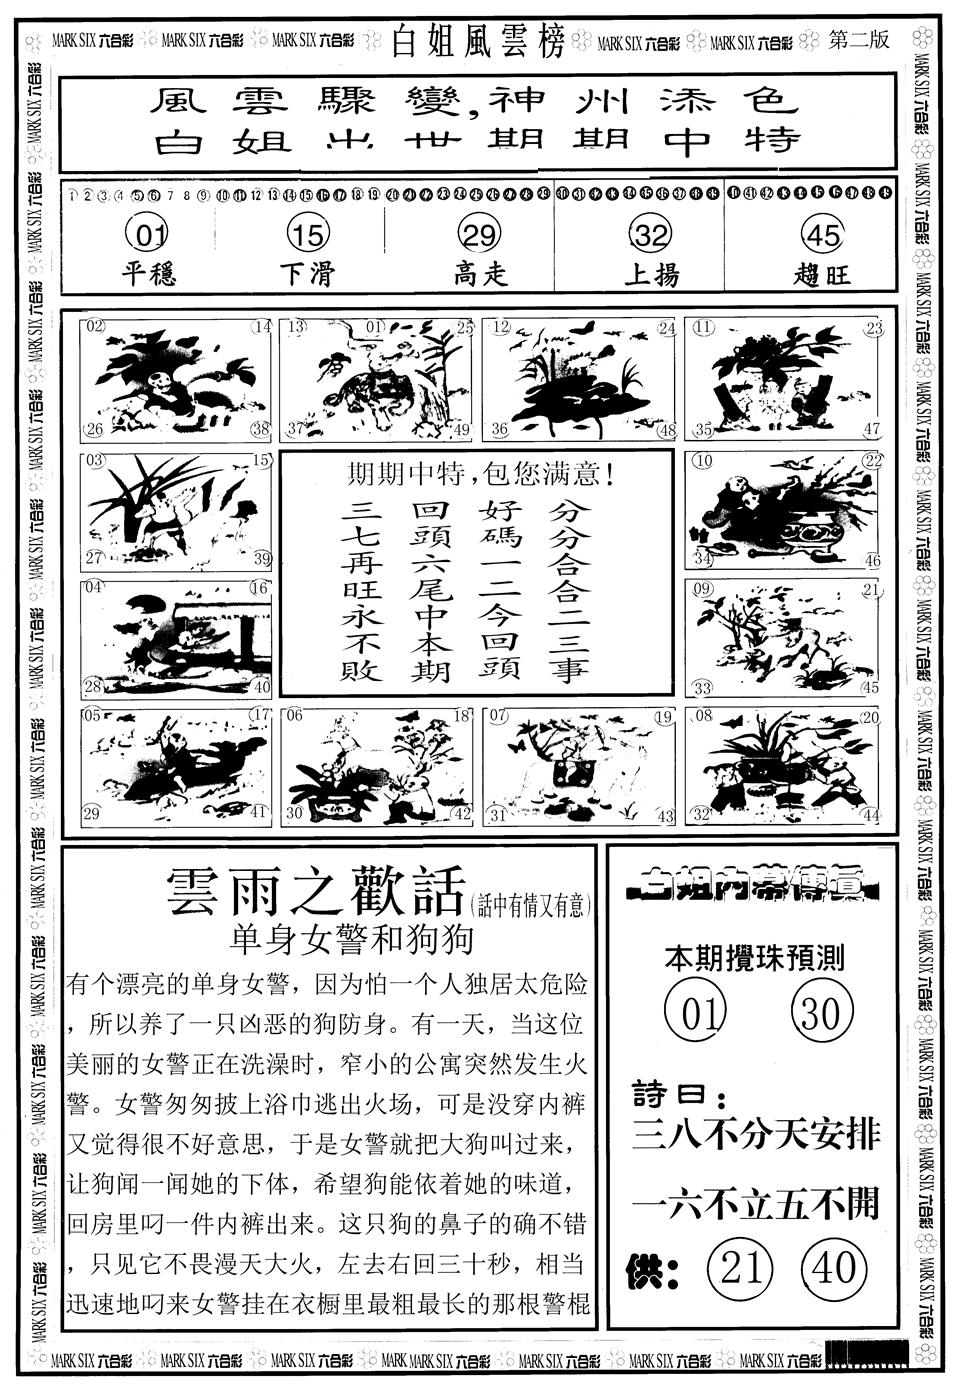 MARK SIX 六合彩 MARK SIX 六合彩 MARK SIX 六合彩 白姐風雲榜 MARK SIX 六合彩 MARK SIX 六合彩 第二版
風雲驟變,神州添色
白姐出世期期中特
1 2 3 4 5 6 7 8 9 10 11 12 13 14 15 16 17 18 19 20 21 22 23 24 25 26 27 28 29 30 31 32 33 34 35 36 37 38 39 40 41 42 43 44 45 46 47 48 49
01 15 29 32 45
平穩 下滑 高走 上揚 趨旺
02 14 13 01 25 12 24 11 23
26 38 37 49 36 48 35 47
03 15
27 39
04 16
28 40
期期中特,包您满意!
分分合合二三事
好碼一二今回頭
回頭六尾中本期
三七再旺永不敗
10 22
34 46
09 21
33 45
05 17 06 18 07 19 08 20
29 41 30 42 31 43 32 44
雲雨之歡話(話中有情又有意)
单身女警和狗狗
有个漂亮的单身女警，因为怕一个人独居太危险
，所以养了一只凶恶的狗防身。有一天，当这位
美丽的女警正在洗澡时，窄小的公寓突然发生火
警。女警匆匆披上浴巾逃出火场，可是没穿内裤
又觉得很不好意思，于是女警就把大狗叫过来，
让狗闻一闻她的下体，希望狗能依着她的味道，
回房里叼一件内裤出来。这只狗的鼻子的确不错
，只见它不畏漫天大火，左去右回三十秒，相当
迅速地叼来女警挂在衣橱里最粗最长的那根警棍
白姐内幕傳真
本期攪珠預測
01 30
詩曰：
三八不分天安排
一六不立五不開
供： 21 40
MARK SIX 六合彩 MARK SIX 六合彩 MARK SIX 六合彩 MARK MARK SIX 六合彩 MARK SIX 六合彩 MARK SIX 六合彩 MARK SIX 六合彩